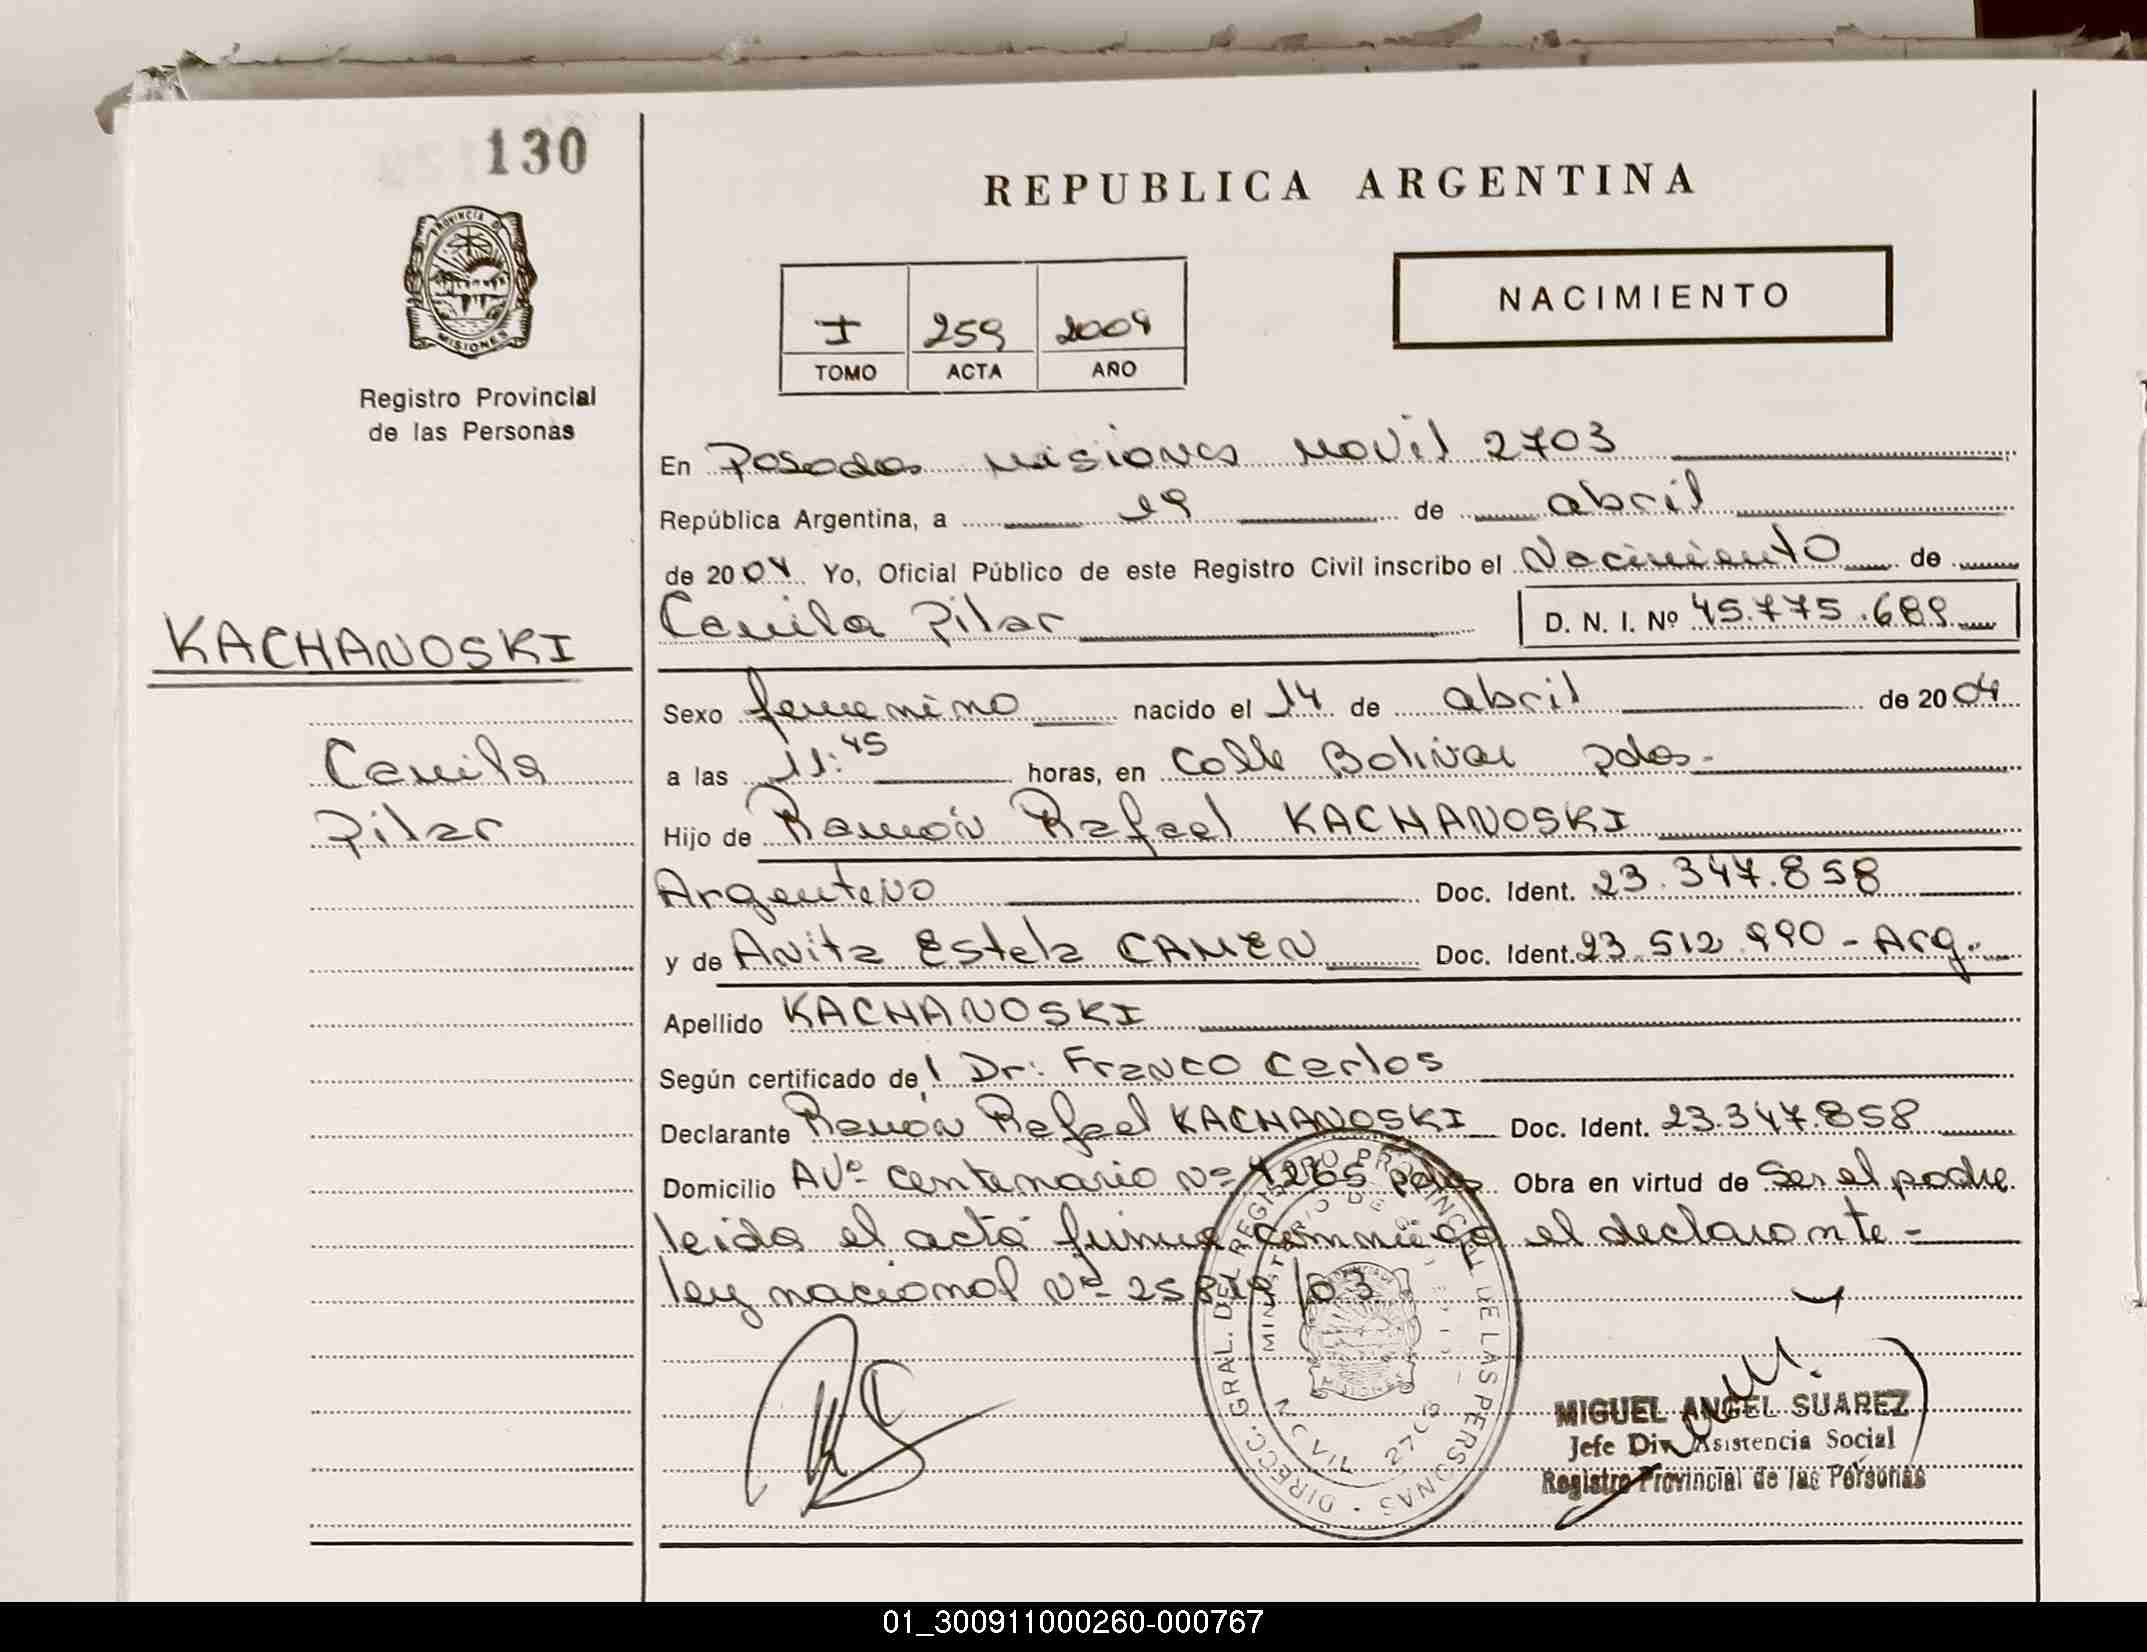 130
PROVINCIA DE
MISIONES
Registro Provincial
de las Personas
REPUBLICA ARGENTINA
NACIMIENTO
I 259 2004
TOMO ACTA AÑO
En Posadas Misiones Movil 2703
República Argentina, a 19 de abril
de 2004 Yo, Oficial Público de este Registro Civil inscribo el Nacimiento de
Camila Pilar D. N. I. Nº 45.775.689
KACHANOSKI
Camila
Pilar
Sexo femenino nacido el 14 de abril de 2004
a las 11:45 horas, en Calle Bolivar pdas-
Hijo de Ramón Rafael KACHANOSKI
Argentino Doc. Ident. 23.347.858
y de Anita Estela CAMEN Doc. Ident. 23.512.990 - Arg.
Apellido KACHANOSKI
Según certificado del Dr: Franco Carlos
Declarante Ramón Rafael KACHANOSKI Doc. Ident. 23.347.858
Domicilio AVº Centenario Nº 4265 pdas Obra en virtud de Ser el padre
leida el acta firma conmigo el declarante -
ley nacional Nº 25819/03
DIRECC. GRAL. DEL REGISTRO PROVINCIAL DE LAS PERSONAS
MINISTERIO DE
MOVIL 2703
MIGUEL ANGEL SUAREZ
Jefe Div. Asistencia Social
Registro Provincial de las Personas
01_300911000260-000767